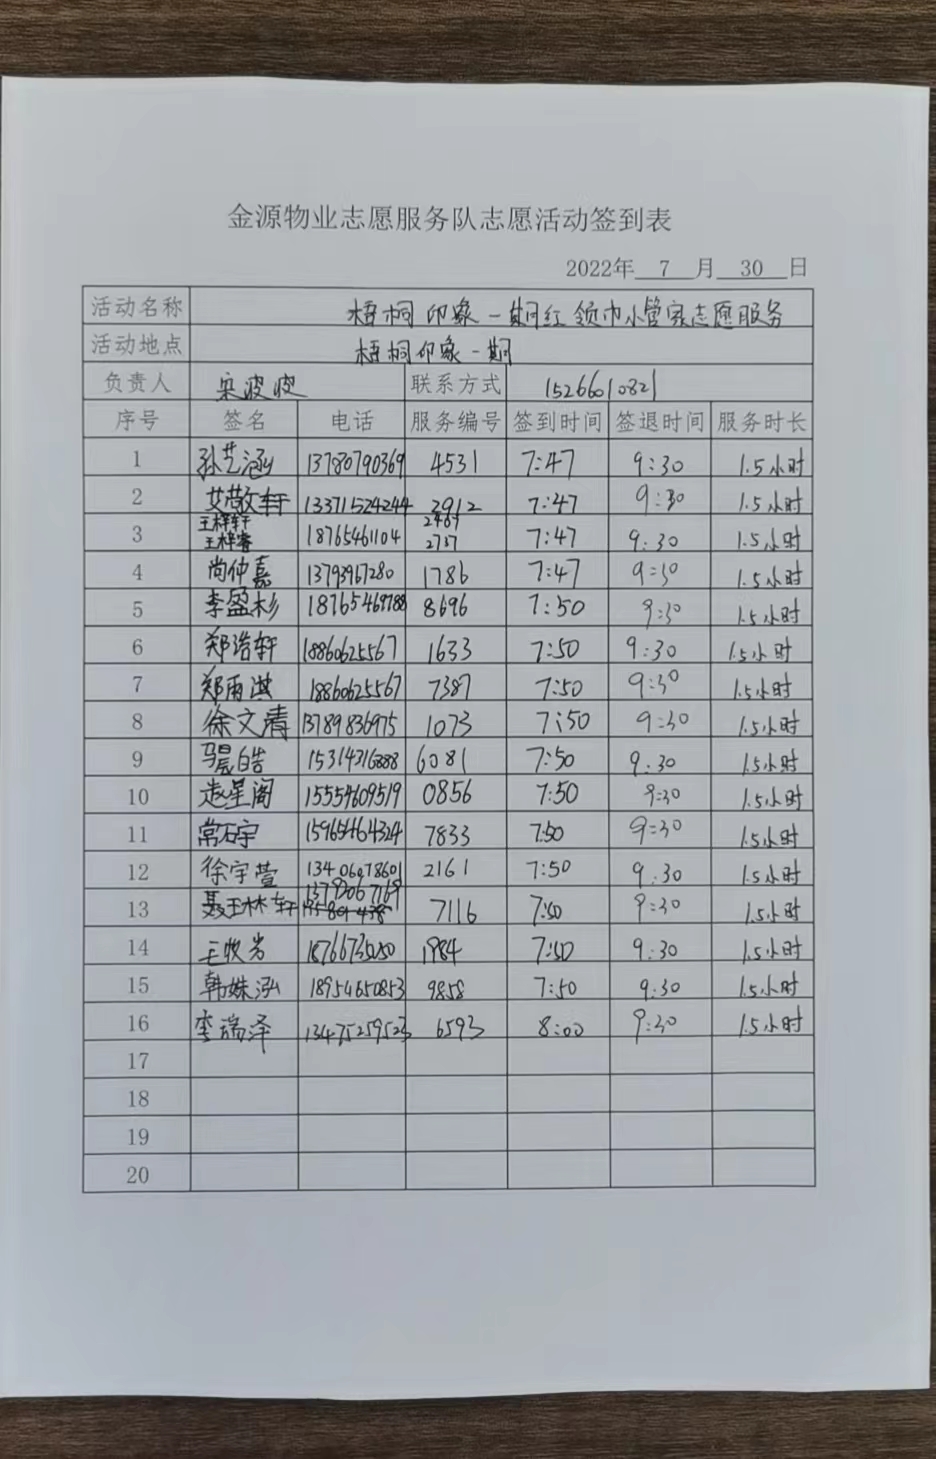 金源物业志愿服务队志愿活动签到表
2022年 7 月 30 日
活动名称 梧桐印象一期红领巾小管家志愿服务
活动地点 梧桐印象一期
负责人 宋波波 联系方式 15266010821
序号 签名 电话 服务编号 签到时间 签退时间 服务时长
1 孙艺涵 13780790369 4531 7:47 9:30 1.5小时
2 艾敬轩 13371524244 3912 7:47 9:30 1.5小时
3 王梓轩 王梓睿 18765461104 2757 7:47 9:30 1.5小时
4 尚仲嘉 13793967280 1786 7:47 9:30 1.5小时
5 李盈杉 18765469788 8696 7:50 9:30 1.5小时
6 郑浩轩 18860625567 1633 7:50 9:30 1.5小时
7 郑雨淇 18860625567 7387 7:50 9:30 1.5小时
8 徐文清 13789836975 1073 7:50 9:30 1.5小时
9 马晨皓 15314316888 6081 7:50 9:30 1.5小时
10 赵星阁 15554609519 0856 7:50 9:30 1.5小时
11 常石宇 15965464324 7833 7:50 9:30 1.5小时
12 徐宇萱 13406078601 2161 7:50 9:30 1.5小时
13 聂玉林轩 13792067169 7116 7:50 9:30 1.5小时
14 王牧岩 1984 7:50 9:30 1.5小时
15 韩姝泓 18954650853 9858 7:50 9:30 1.5小时
16 李瑞泽 13475259523 6593 8:00 9:30 1.5小时
17
18
19
20